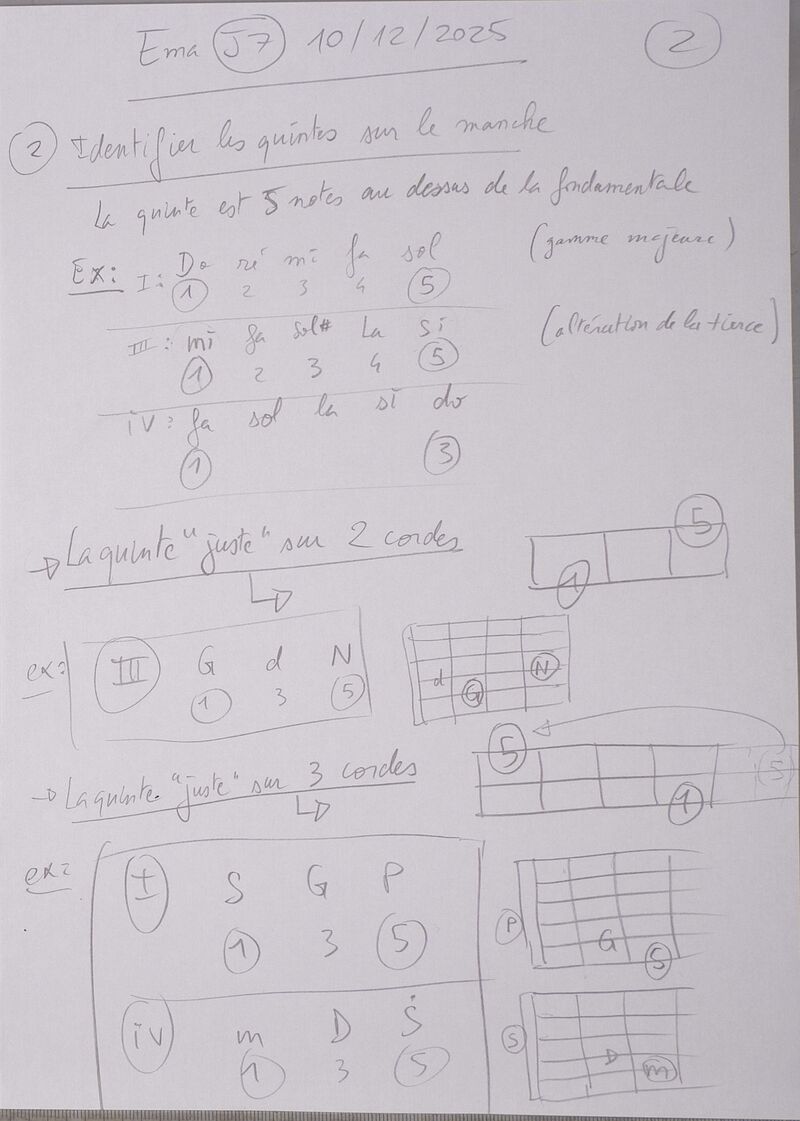 Ema J7 10/12/2025 2
2 Identifier les quintes sur le manche
La quinte est 5 notes au dessus de la fondamentale
Ex: I: Do ré mi fa sol (gamme majeure)
1 2 3 4 5
III: mi fa sol# La si (altération de la tierce)
1 2 3 4 5
iv: fa sol la si do
1 3
→ La quinte "juste" sur 2 cordes
5
1
ex: III G d N
1 3 5
d G N
→ La quinte "juste" sur 3 cordes
5 5
1
ex: I S G P
1 3 5
P G S
iv m D Ṡ
1 3 5
S D m